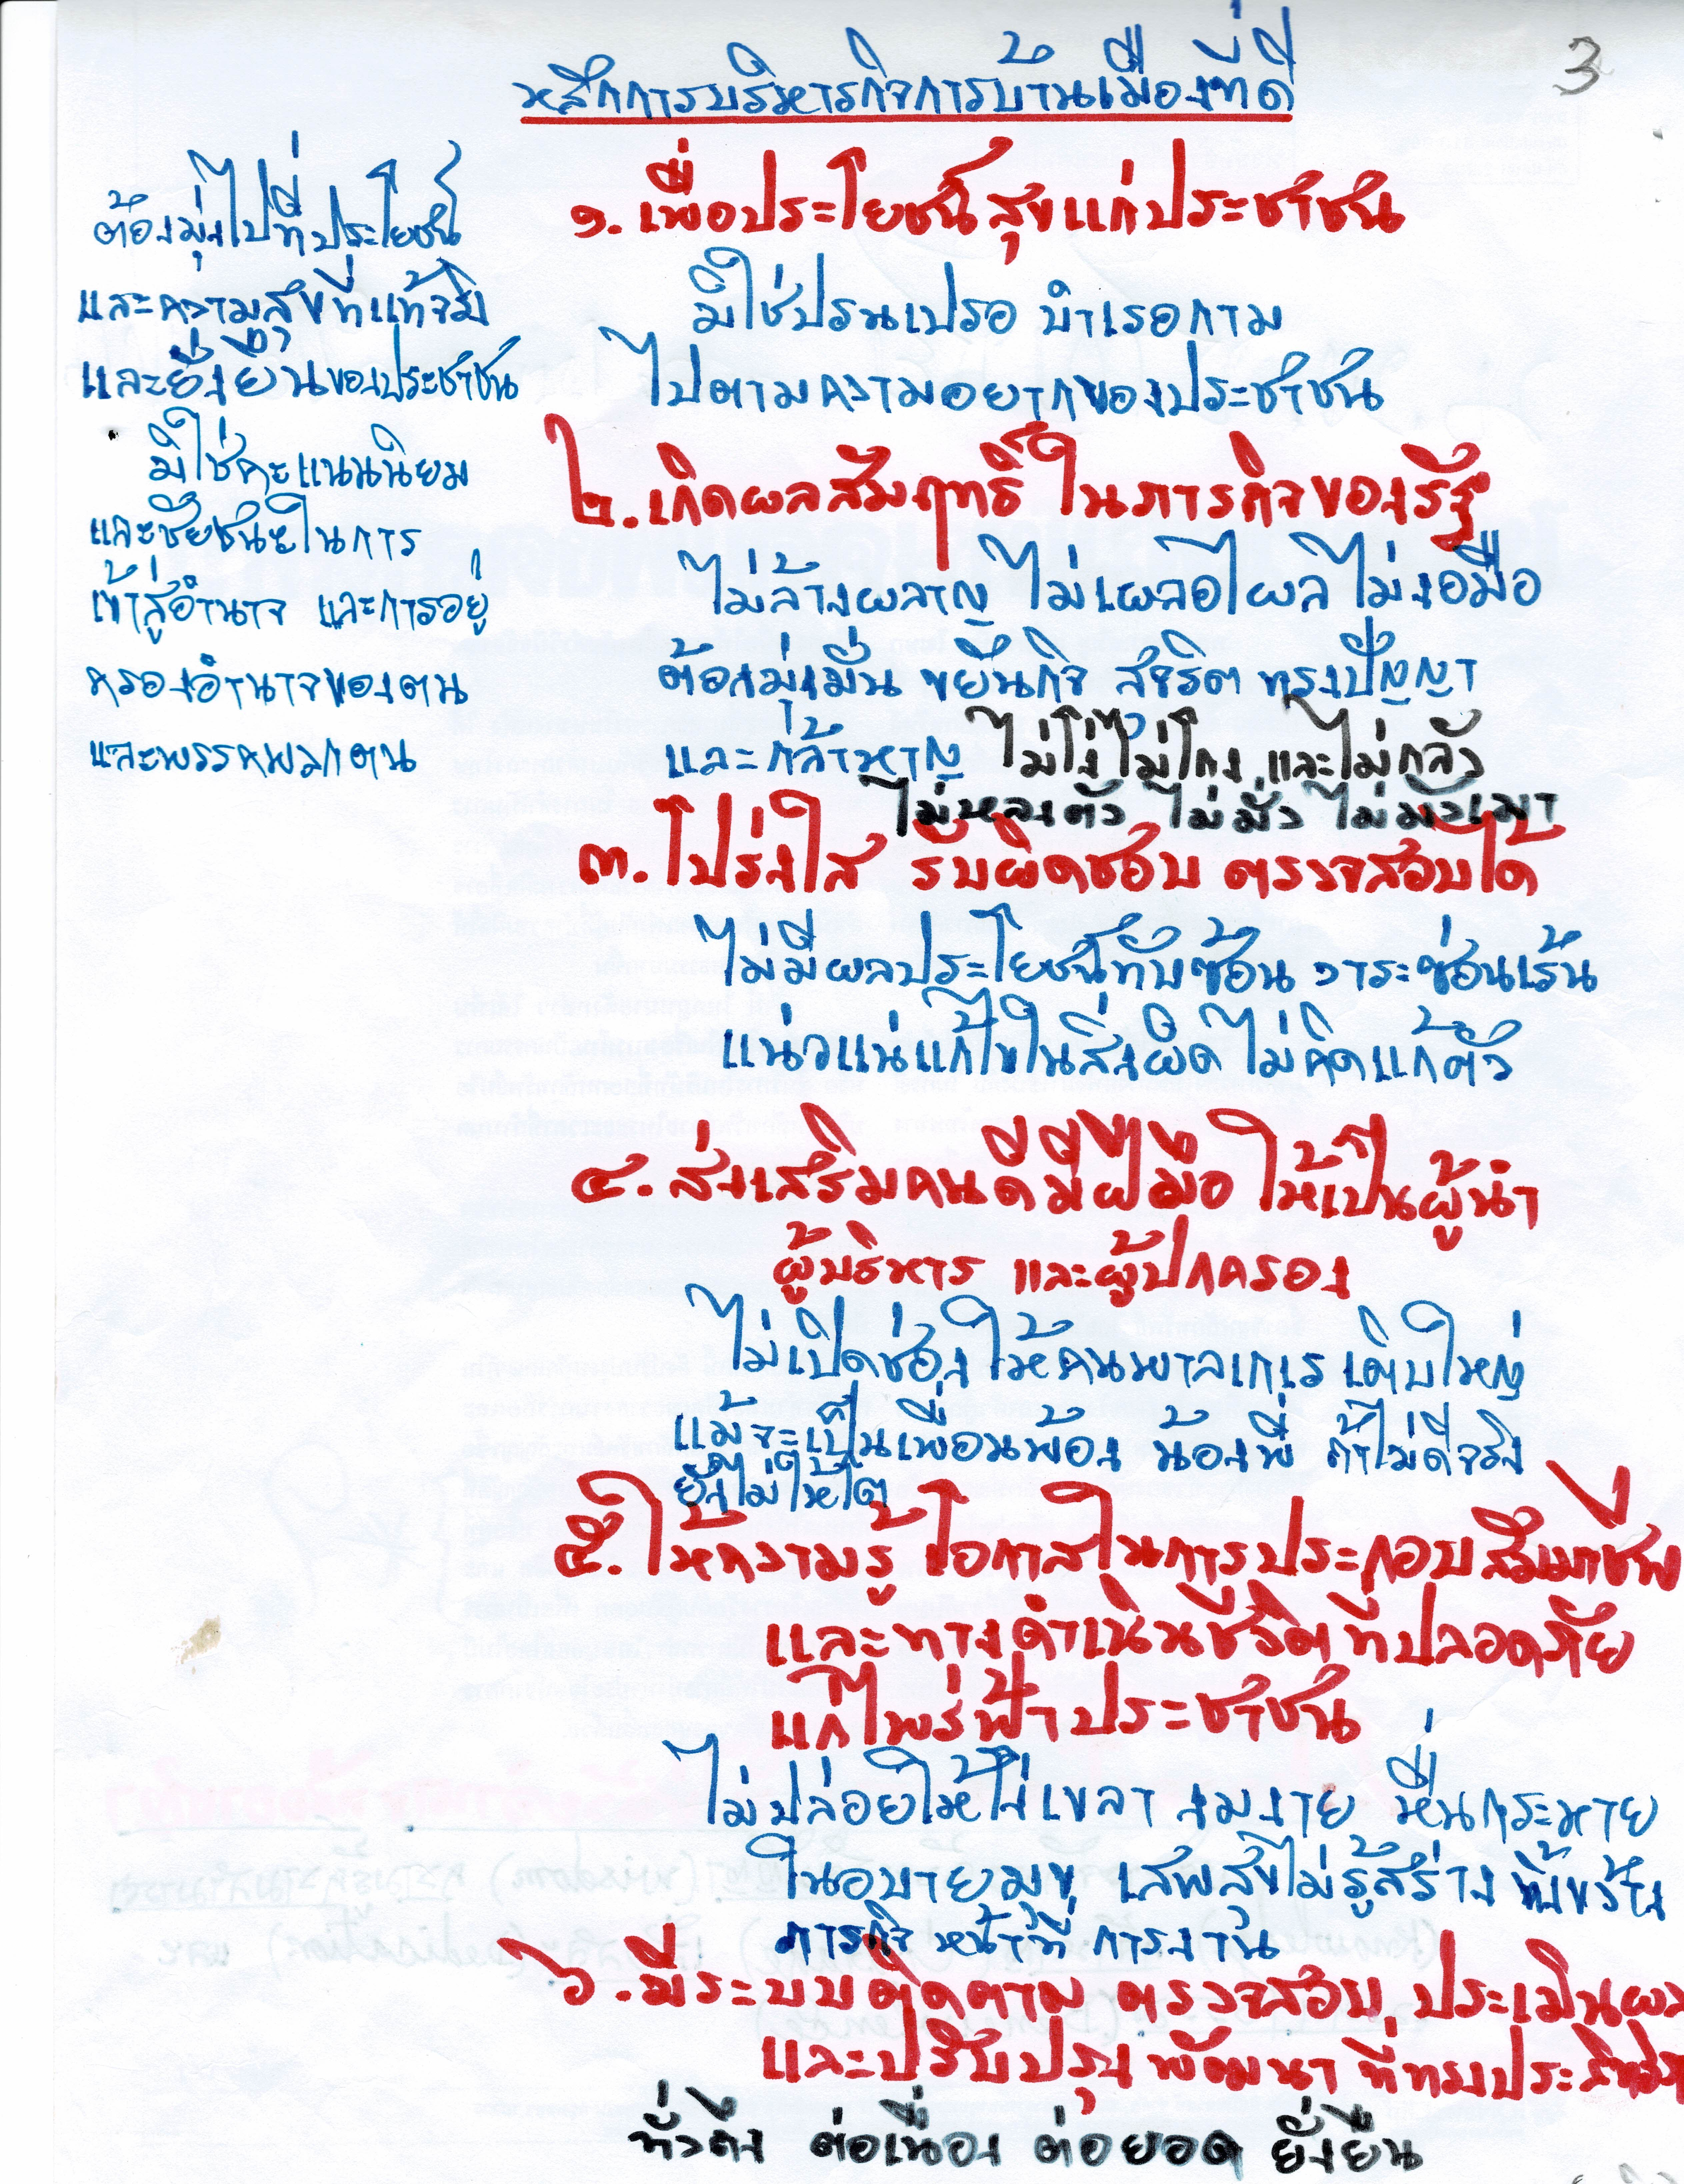 3
หลักการบริหารกิจการบ้านเมืองที่ดี
ต้องมุ่งไปที่ประโยชน์
และความสุขที่แท้จริง
และยั่งยืนของประชาชน
มิใช่คะแนนนิยม
และชัยชนะในการ
เข้าสู่อำนาจ และการอยู่
ครองอำนาจของตน
และพรรคพวกตน
๑. เพื่อประโยชน์สุขแก่ประชาชน
มิใช่ปรนเปรอ บำเรอกาม
ไปตามความอยากของประชาชน
๒. เกิดผลสัมฤทธิ์ในภารกิจของรัฐ
ไม่ล้างผลาญ ไม่เผลอไผล ไม่งอมือ
ต้องมุ่งมั่น ขยันกิจ สุจริต ทรงปัญญา
และกล้าหาญ ไม่โง่ ไม่โกง และไม่กลัว
ไม่หลงตัว ไม่มั่ว ไม่มัวเมา
๓. โปร่งใส รับผิดชอบ ตรวจสอบได้
ไม่มีผลประโยชน์ทับซ้อน วาระซ่อนเร้น
แน่วแน่แก้ไขในสิ่งผิด ไม่คิดแก้ตัว
๔. ส่งเสริมคนดีมีฝีมือ ให้เป็นผู้นำ
ผู้บริหาร และผู้ปกครอง
ไม่เปิดช่องให้คนพาลเกเร เติบใหญ่
แม้จะเป็นเพื่อนพ้อง น้องพี่ ถ้าไม่ดีจริง
ยังไม่ให้โต
๕. ให้ความรู้ โอกาสในการประกอบสัมมาชีพ
และทางดำเนินชีวิตที่ปลอดภัย
แก่ไพร่ฟ้าประชาชน
ไม่ปล่อยให้โง่เขลา งมงาย หื่นกระหาย
ในอบายมุข เสพสุขไม่รู้สร่าง ทิ้งขว้าง
ภารกิจ หน้าที่ การงาน
๖. มีระบบติดตาม ตรวจสอบ ประเมินผล
และปรับปรุง พัฒนา ที่ทรงประสิทธิ
ทั่วถึง ต่อเนื่อง ต่อยอด ยั่งยืน